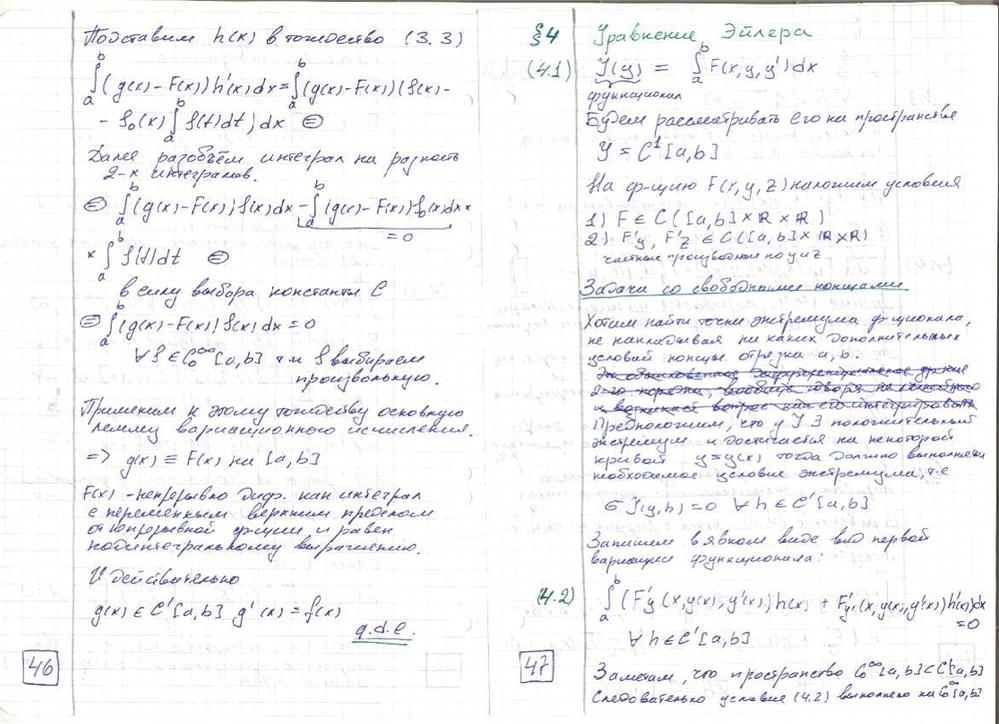 Подставим h(x) в тождество (3.3)
∫ₐᵇ (g(x) - F(x)) h'(x) dx = ∫ₐᵇ (g(x) - F(x)) (f(x) -
- f₀(x) ∫ₐᵇ f(t) dt) dx ⊜
Далее разобъём интеграл на разность
2-х интегралов.
⊜ ∫ₐᵇ (g(x) - F(x)) f(x) dx - ∫ₐᵇ (g(x) - F(x)) f₀(x) dx ×
= 0
× ∫ₐᵇ f(t) dt ⊜
в силу выбора константы C
⊜ ∫ₐᵇ (g(x) - F(x)) f(x) dx = 0
∀ f ∈ C₀^∞ [a,b] т.к f выбираем
произвольную.
Применим к этому тождеству основную
лемму вариационного исчисления.
=> g(x) ≡ F(x) на [a,b]
F(x) - непрерывно диф. как интеграл
с переменным верхним пределом
от непрерывной ф-ции и равен
подинтегральному выражению.
И действительно
g(x) ∈ C'[a,b] g'(x) = f(x)
q.d.e.
46
§4 Уравнение Эйлера
(4.1) J(y) = ∫ₐᵇ F(x,y,y') dx
функционал
Будем рассматривать его на пространстве
Y = C¹[a,b]
На ф-цию F(x,y,z) наложим условия
1) F ∈ C([a,b] × ℝ × ℝ)
2) F'y, F'z ∈ C([a,b] × ℝ × ℝ)
частные производные по y и z
Задача со свободными концами
Хотим найти точки экстремума ф-ционала,
не накладывая ни каких дополнительных
условий концы отрезка a, b.
Это обыкновенное дифференциальное ур-ние
2-го порядка, вообще говоря не линейного
и возникает вопрос как его интегрировать
Предположим, что у J ∃ положительный
экстремум и достигается на некоторой
кривой y = y(x) тогда должно выполняться
необходимое условие экстремума, т.е
σ J(y,h) = 0 ∀ h ∈ C'[a,b]
Запишем в явном виде вид первой
вариации функционала:
(4.2) ∫ₐᵇ (F'y (x,y(x),y'(x)) h(x) + F'y' (x,y(x),y'(x)) h'(x)) dx
= 0
∀ h ∈ C'[a,b]
Заметим, что пространство C₀^∞ [a,b] ⊂ C'[a,b]
Следовательно условие (4.2) выполнено на C₀^∞ [a,b]
47